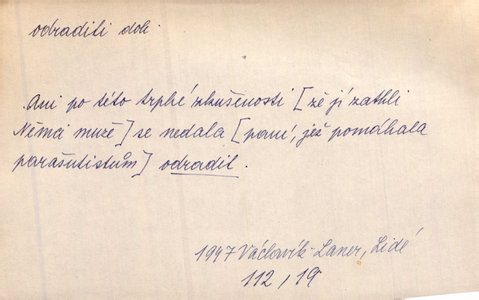 odraditi dok.
Ani po této trpké zkušenosti [že jí zatkli
Němci muže] se nedala [paní, jež pomáhala
parašutistům] odradit.
1947 Václavík-Laner, Lidé
112/19